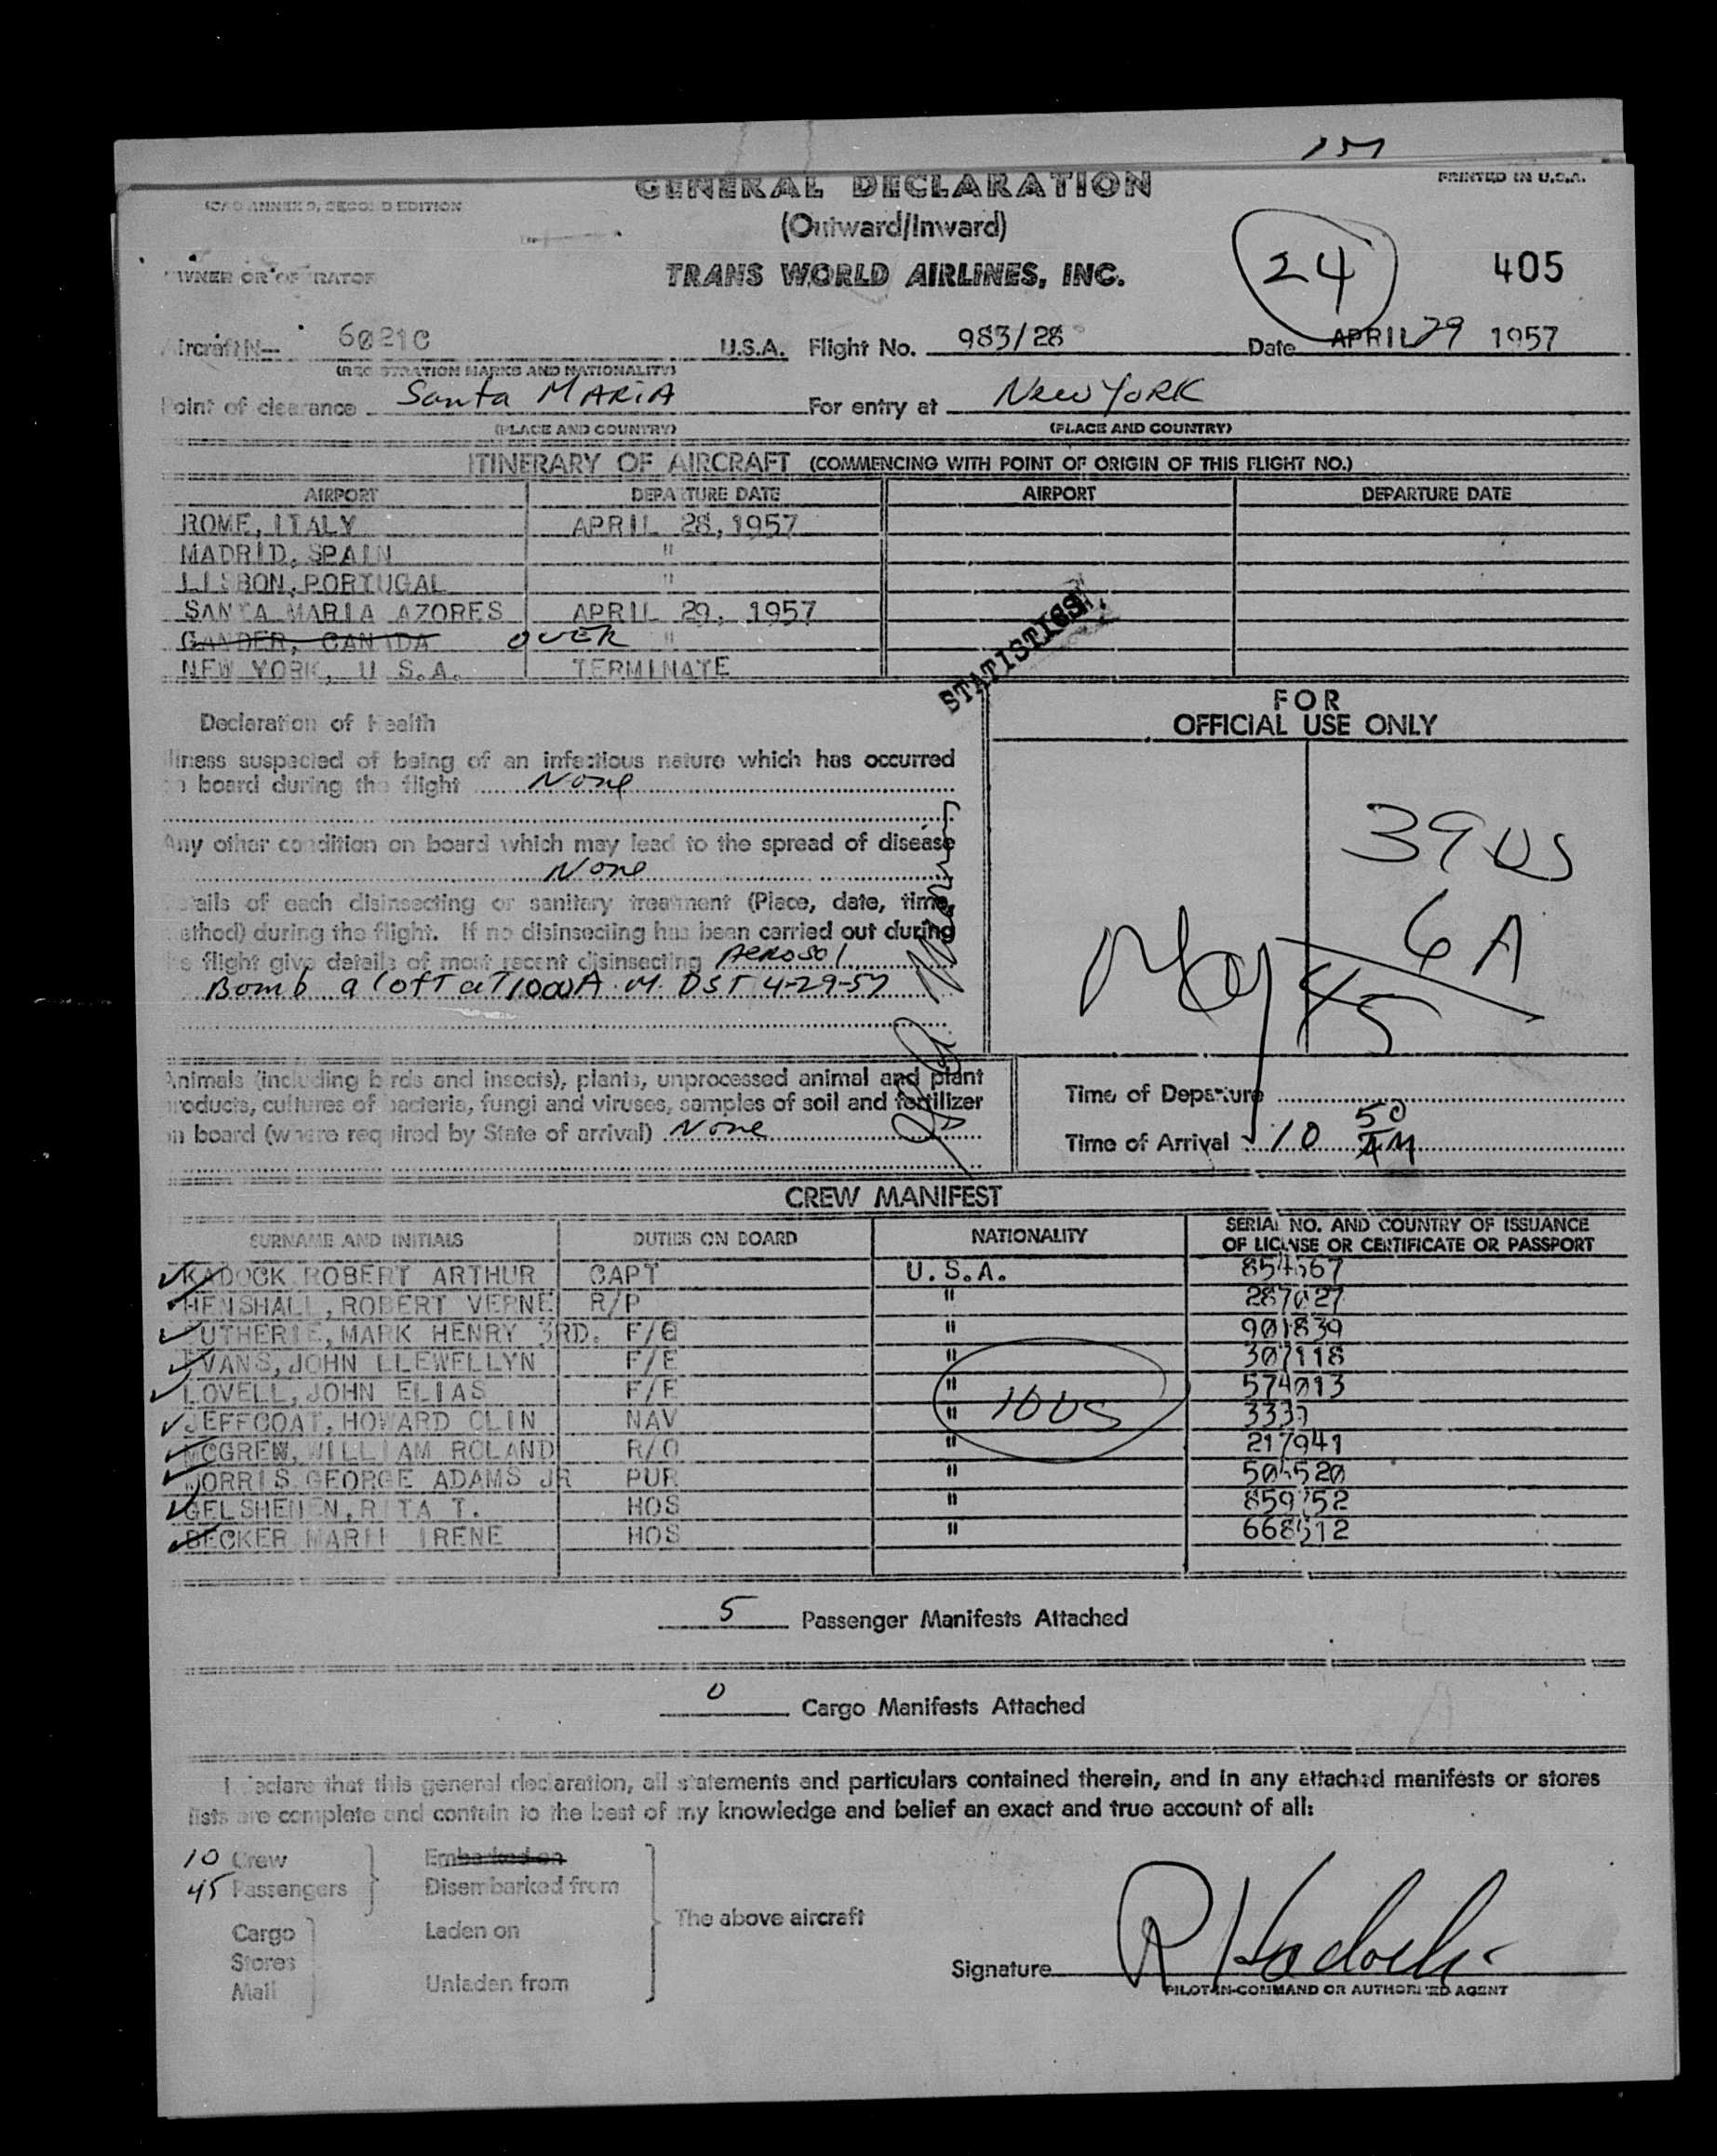 GENERAL DECLARATION
PRINTED IN U.S.A.
ICAO ANNEX 9, SECOND EDITION
(Outward/Inward)
OWNER OR OPERATOR
TRANS WORLD AIRLINES, INC.
24
405
Aircraft N— 6021C U.S.A. Flight No. 983/28 Date APRIL 29 1957
(REGISTRATION MARKS AND NATIONALITY)
Point of clearance Santa MARIA For entry at New YORK
(PLACE AND COUNTRY) (PLACE AND COUNTRY)
ITINERARY OF AIRCRAFT (COMMENCING WITH POINT OF ORIGIN OF THIS FLIGHT NO.)
AIRPORT DEPARTURE DATE AIRPORT DEPARTURE DATE
ROME, ITALY APRIL 28, 1957
MADRID, SPAIN "
LISBON, PORTUGAL "
SANTA MARIA AZORES APRIL 29, 1957
GANDER, CANADA OVER "
NEW YORK, U.S.A. TERMINATE
STATISTICS
FOR
OFFICIAL USE ONLY
Declaration of Health
Illness suspected of being of an infectious nature which has occurred
on board during the flight None
Any other condition on board which may lead to the spread of disease
None
Details of each disinsecting or sanitary treatment (Place, date, time,
method) during the flight. If no disinsecting has been carried out during
the flight give details of most recent disinsecting Aerosol
Bomb aloft at 1000 A.M. DST 4-29-57
39 US
6 A
45
Animals (including birds and insects), plants, unprocessed animal and plant
products, cultures of bacteria, fungi and viruses, samples of soil and fertilizer
on board (where required by State of arrival) None
Time of Departure
Time of Arrival 10 50 AM
CREW MANIFEST
SURNAME AND INITIALS DUTIES ON BOARD NATIONALITY SERIAL NO. AND COUNTRY OF ISSUANCE
OF LICENSE OR CERTIFICATE OR PASSPORT
KADOCK ROBERT ARTHUR CAPT U.S.A. 854567
HENSHALL, ROBERT VERNE R/P " 287027
GUTHERIE, MARK HENRY 3RD. F/O " 901839
EVANS, JOHN LLEWELLYN F/E " 307118
LOVELL, JOHN ELIAS F/E " 574013
JEFFCOAT, HOWARD OLIN NAV "
MCGREW, WILLIAM ROLAND R/O " 217941
GEORGE ADAMS JR PUR " 505520
GELSHENEN, RITA T. HOS " 859752
BECKER MARIE IRENE HOS " 668512
10 US
5 Passenger Manifests Attached
0 Cargo Manifests Attached
I declare that this general declaration, all statements and particulars contained therein, and in any attached manifests or stores
lists are complete and contain to the best of my knowledge and belief an exact and true account of all:
10 Crew Embarked on
45 Passengers Disembarked from
The above aircraft
Cargo Laden on
Stores
Mail Unladen from
Signature R Kadock
PILOT-IN-COMMAND OR AUTHORIZED AGENT